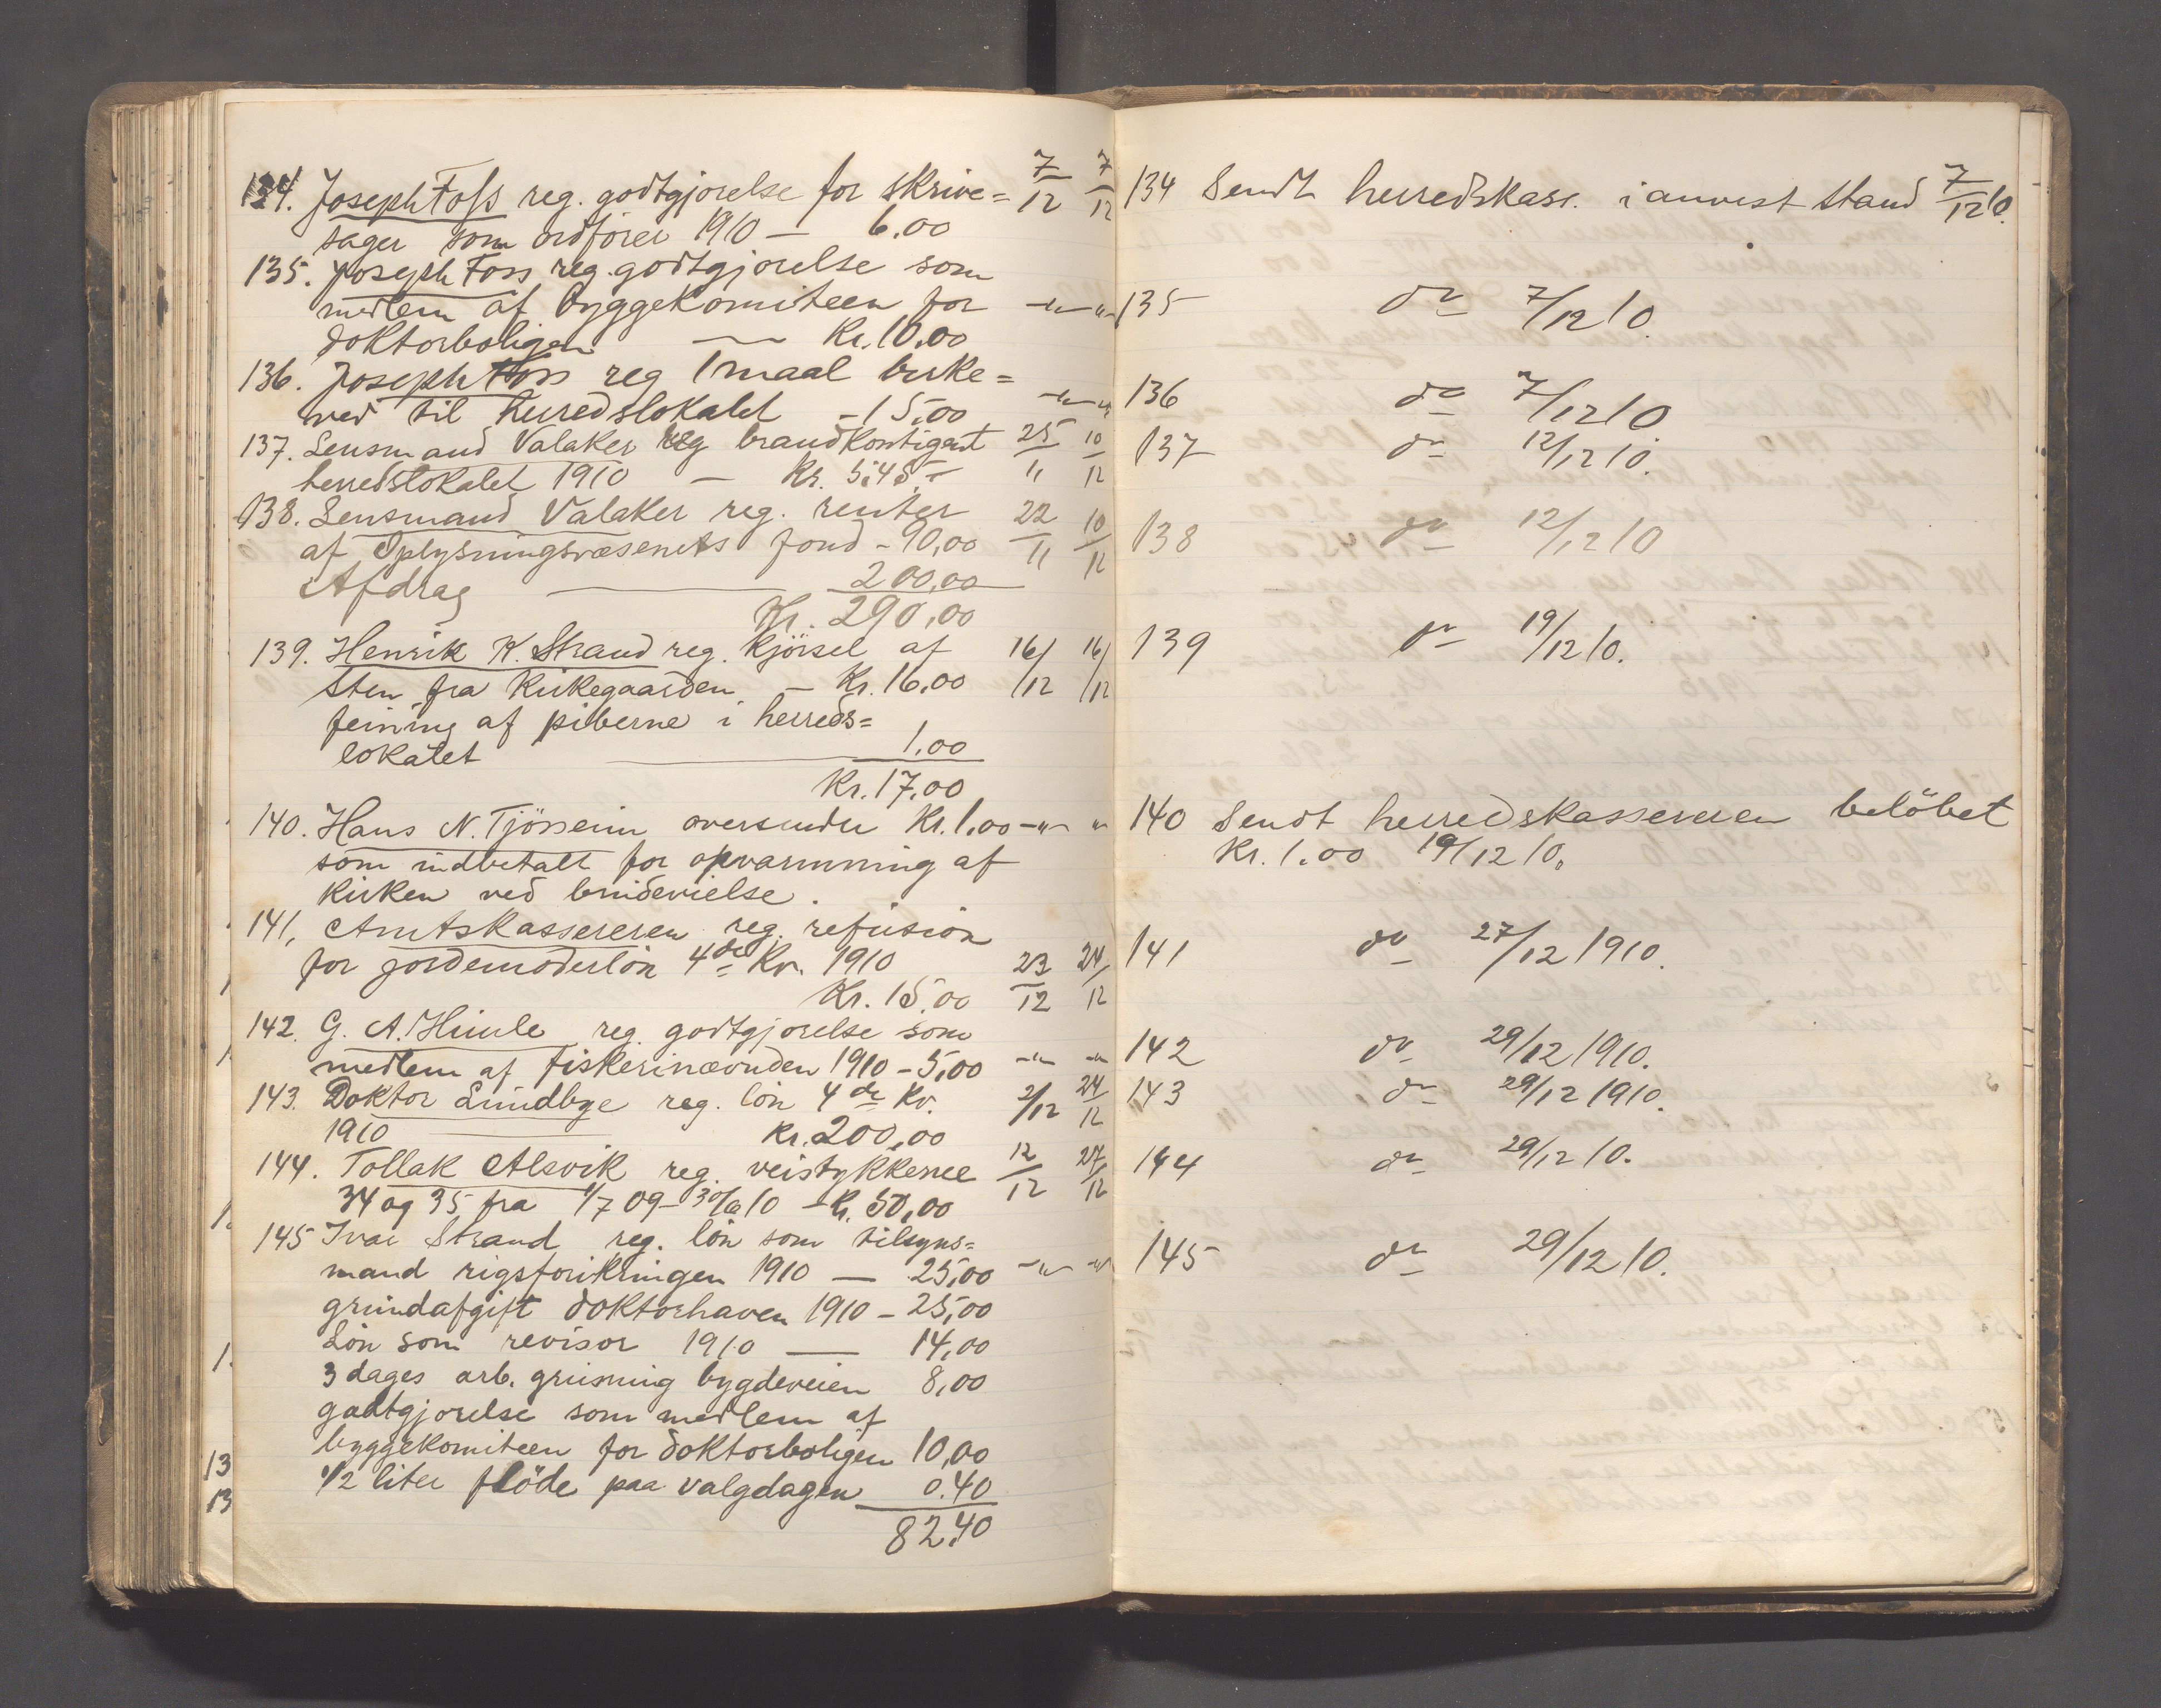 134. Joseph Foss reg. godtgjørelse for skrive= 7/12 7/12
sager som ordfører 1910 — 6.00
135. Joseph Foss reg. godtgjørelse som
medlem af byggekomiteen for -"- "
doktorboligen — Kr. 10.00
136. Joseph Foss reg 1 maal birke=
ved til herredslokalet - 15,00 -"- "
137. Lensmand Valaker reg brandkontigent 25/11 10/12
herredslokalet 1910 — Kr. 5,45
138. Lensmand Valaker reg. renter 22/11 10/12
af Oplysningsvæsenets fond - 90,00
Afdrag — 200,00
Kr. 290,00
139. Henrik K. Strand reg. kjörsel af 16/12 16/12
sten fra kirkegaarden — Kr. 16.00
feining af piberne i herreds=
lokalet — 1,00
Kr. 17,00
140. Hans N. Tjössem oversender Kr. 1,00 -"- "
som indbetalt for opvarmning af
kirken ved brudevielse.
141. Amtskassereren reg. refusion
for jordemoderløn 4de Kv. 1910 23/12 24/12
Kr. 15,00
142. G. A. Hinle reg. godtgjørelse som
medlem af fiskerinævnden 1910 - 5,00 -"- -"-
143. Doktor Lundbye reg. løn 4de Kv. 2/12 24/12
1910 — Kr. 200,00
144. Tollak Alsvik reg. veistykkerne 12/12 27/12
34 og 35 fra 1/7 09 - 30/6 10 - Kr. 50,00
145 Ivar Strand reg. løn som tilsyns=
mand rigsforsikringen 1910 — 25,00 -"- -"-
grundafgift doktorhaven 1910 - 25,00
Løn som revisor 1910 — 14,00
3 dages arb. grusning bygdeveien 8,00
godtgjørelse som medlem af
byggekomiteen for doktorboligen 10,00
1/2 liter flöde paa valgdagen 0.40
82,40
134 Sendt herredskass. i anvist stand 7/12 10.
135 do 7/12 10.
136 do 7/12 10
137 do 12/12 10.
138 do 12/12 10
139 do 19/12 10.
140 Sendt herredskassereren belöbet
Kr. 1.00 19/12 10.
141 do 27/12 1910.
142 do 29/12 1910.
143 do 29/12 1910.
144 do 29/12 10.
145 do 29/12 10.